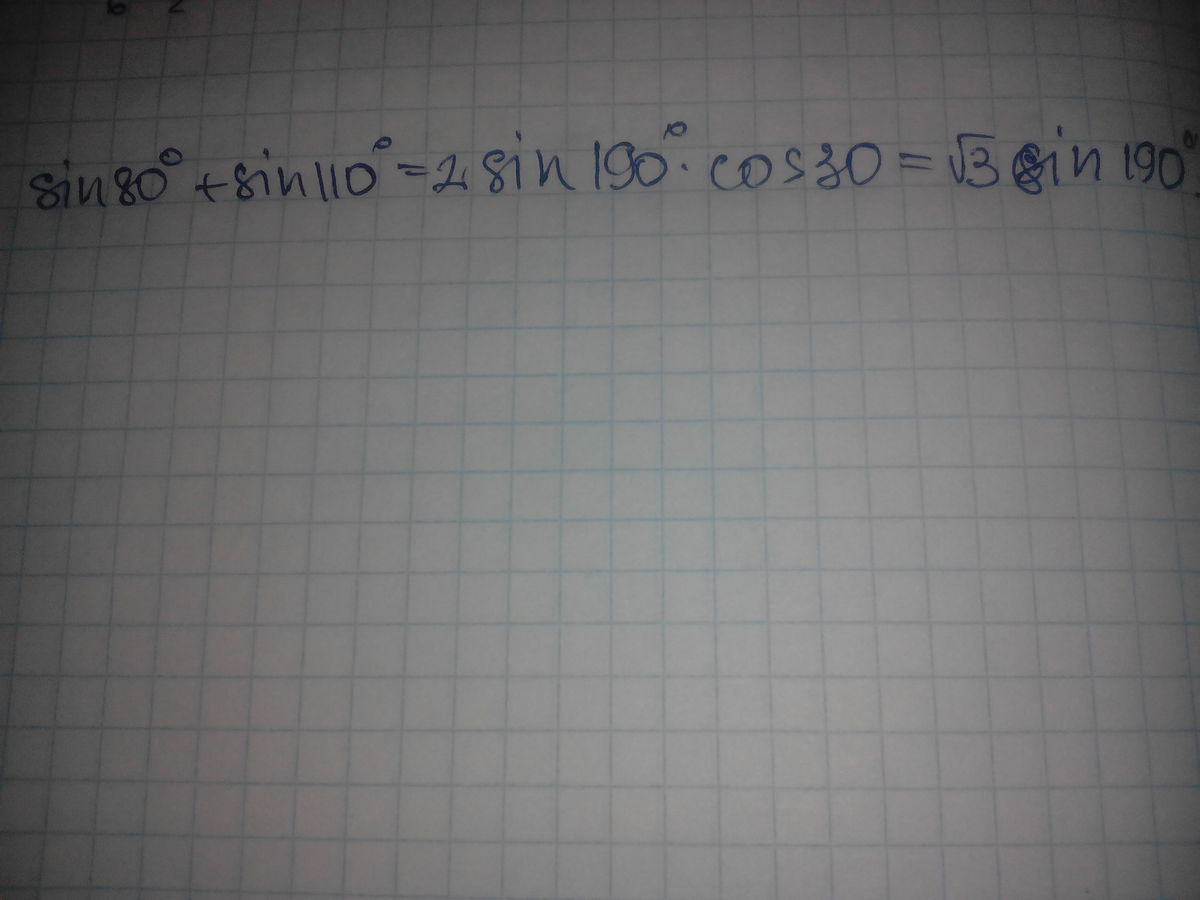 sin80° + sin110° = 2 sin 190° · cos30 = √3 sin 190°